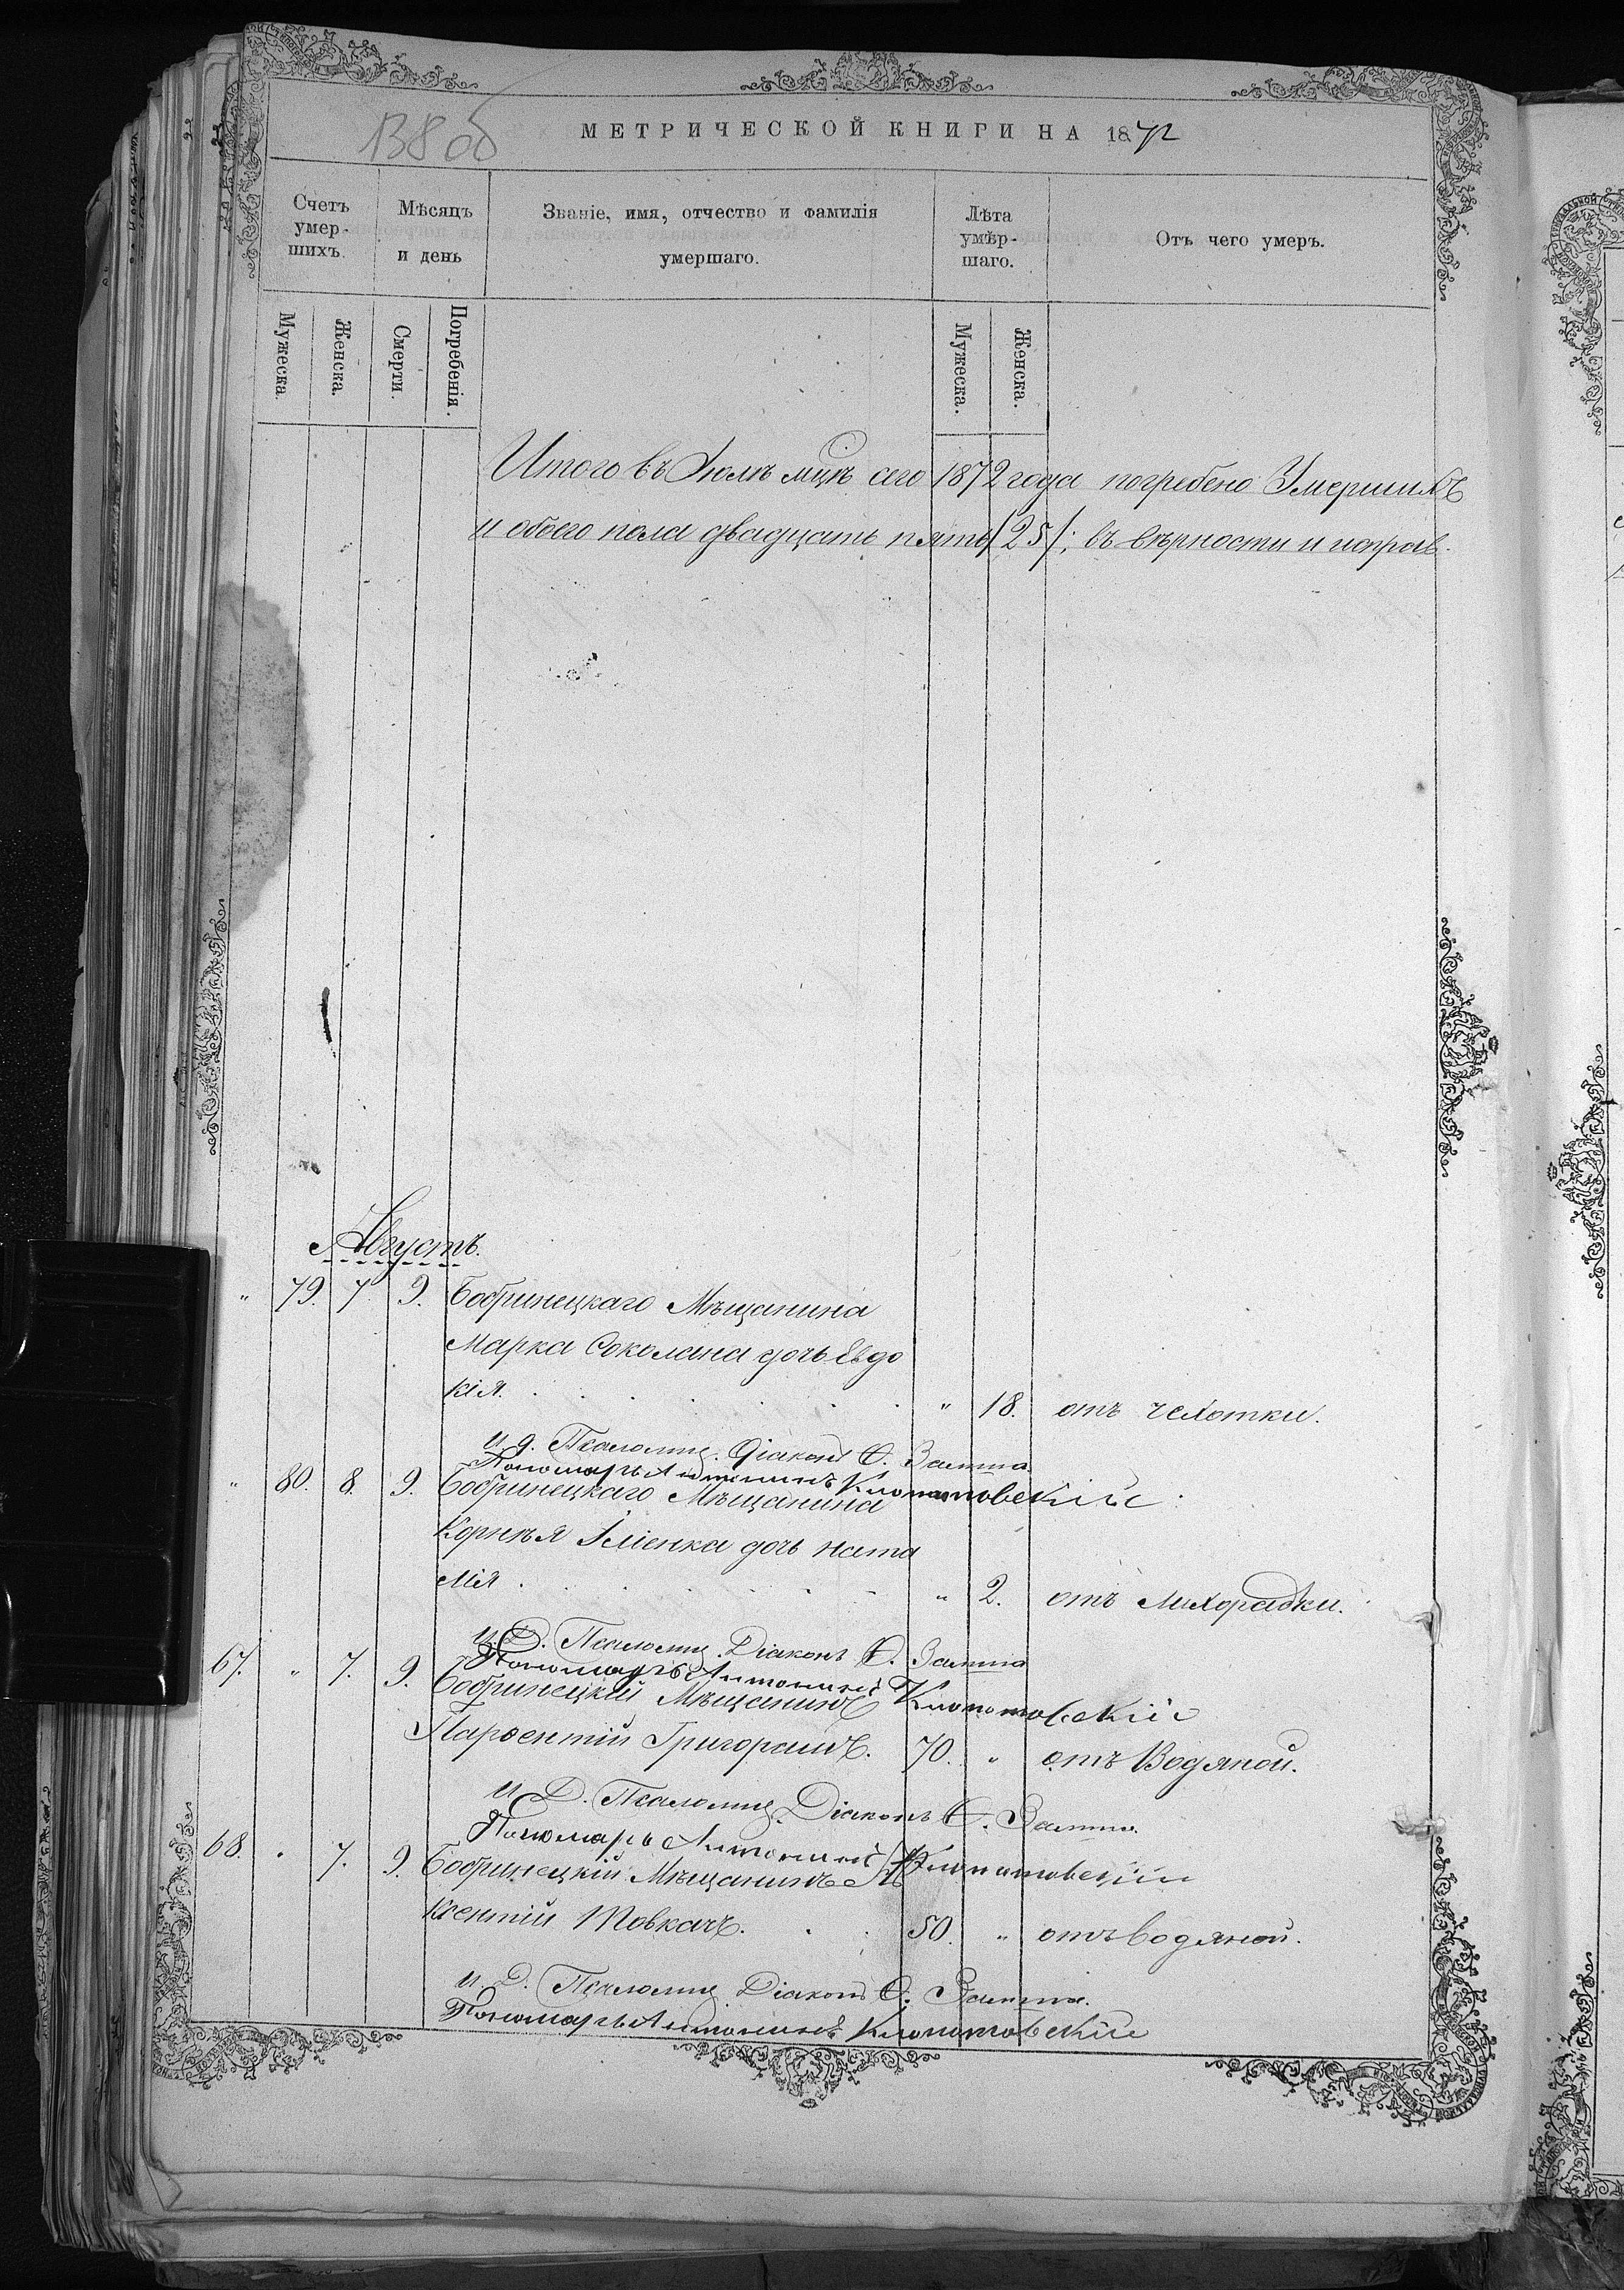 138 об
МЕТРИЧЕСКОЙ КНИГИ НА 1872
Счетъ умер-шихъ.
Мѣсяцъ и день
Званіе, имя, отчество и фамилія умершаго.
Лѣта умѣр-шаго.
Отъ чего умеръ.
Мужеска.
Женска.
Смерти.
Погребенія.
Мужеска.
Женска.
Итого въ Июлѣ мцѣ сего 1872 года погребено Умершихъ
и обоего пола двадцать пять /25/; въ вѣрности и исправ.
Августъ.
" 79. 7 9. Бобринецкаго Мѣщанина
Марка Соколана дочь Евдо
кія. " 18. отъ чехотки.
И. д. Псаломщ. Діаконъ Ѳ.
Пономарь Антоній Клопотовскій
" 80. 8. 9. Бобринецкаго Мѣщанина
Корнѣя дочь Ната
лія. " 2. отъ Лихорадки.
И. Д. Псаломщ. Діаконъ Ѳ.
Пономарь Антоній Клопотовскій
67. " 7. 9. Бобринецкій Мѣщанинъ
Парѳентій Григорашъ. 70. " отъ Водяной.
И. Д. Псаломщ. Діаконъ Ѳ.
Пономарь Антоній Клопотовскій
68. " 7. 9. Бобринецкій Мѣщанинъ Ав
ксентій Товкачъ. 50. " отъ водяной.
И. Д. Псаломщ. Діаконъ Ѳ.
Пономарь Антоній Клопотовскій